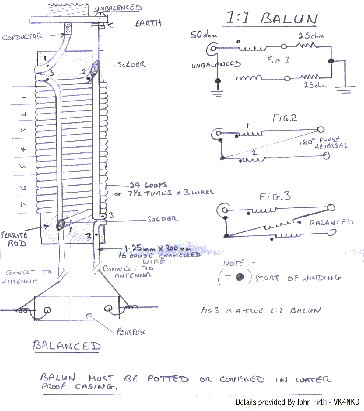 UNBALANCED
EARTH
CONDUCTOR
SOLDER
1
3
2
24 LOOPS
OR 7½ TURNS X 3 WIRES
SOLDER
3
1
2
FERRITE
ROD
1.25mm x 900mm
16 GAUGE ENAMELLED
WIRE
CONNECT TO
ANTENNA
CONNECT TO
ANTENNA
PERSPEX
BALANCED
BALUN MUST BE POTTED OR COVERED IN WATER
PROOF CASING.
1:1 BALUN
50 ohm
25 ohm
UNBALANCED
FIG 1
25 ohm
FIG.2
1
2
180° PHASE
REVERSAL
FIG.3
BALANCED
NOTE:-
START OF WINDING
FIG 3 IS A TRUE 1:1 BALUN
Details provided By John Firth - VK4NKD